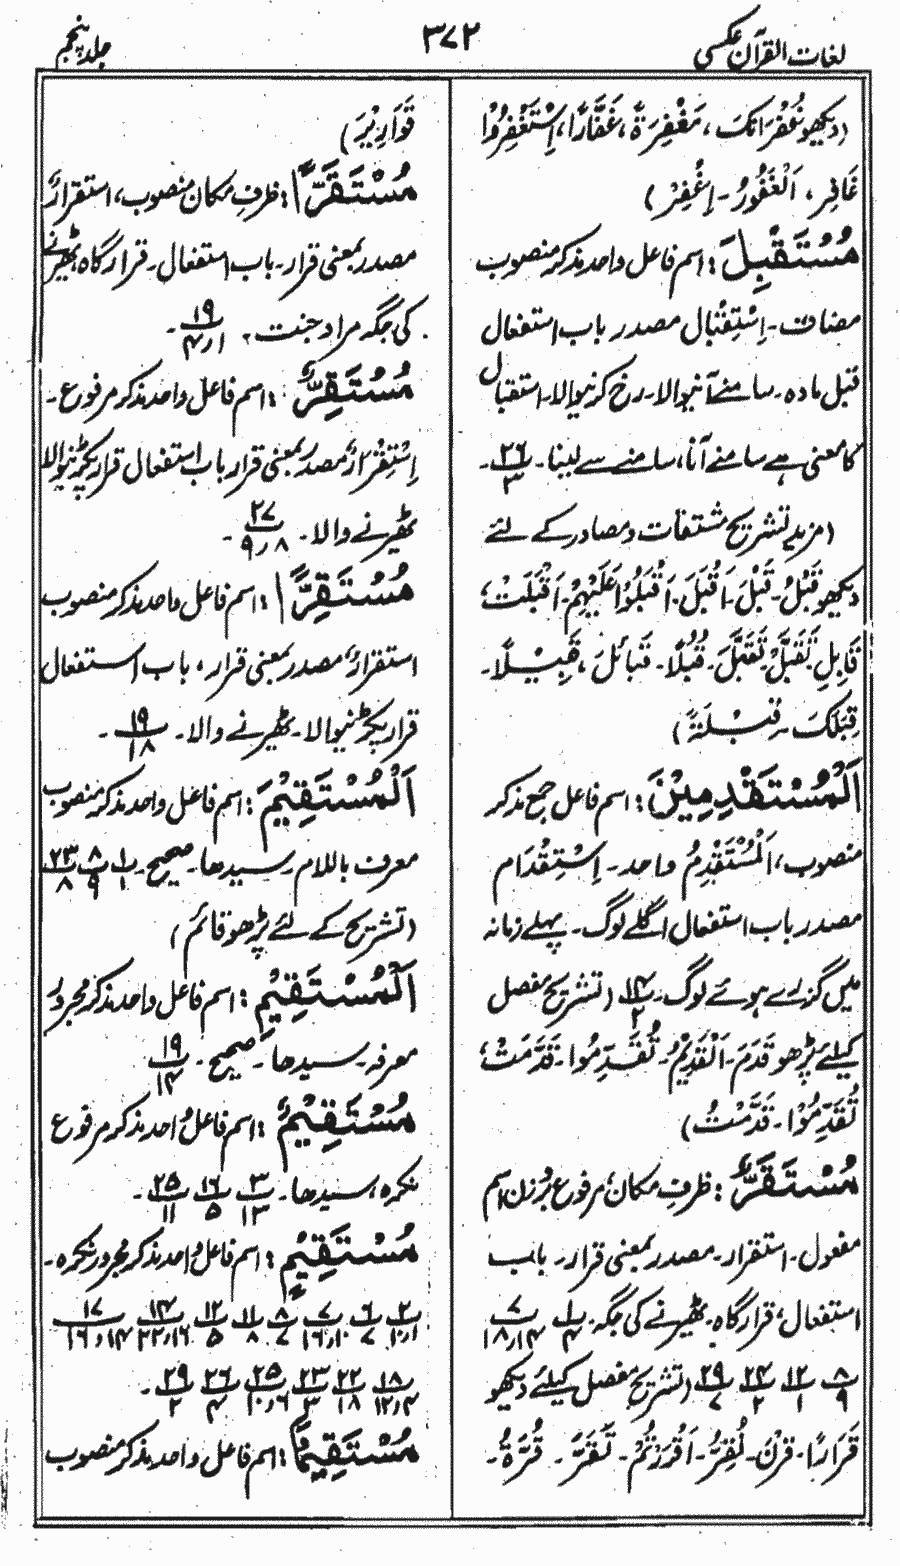 لغات القرآن عکسی
۳۷۲
جلد پنجم
(دیکھو نُغْفِرَ انکَ، مَغْفِرَةً، غَفَّارًا، اِسْتَغْفِرُوْا
غَافِرِ، اَلْغَفُوْرُ۔ اِغْفِرْ)
مُسْتَقْبِلَ: اسم فاعل واحد مذکر منصوب
مضاف۔ اِسْتِقْبَال مصدر باب استفعال
قبل مادہ۔ سامنے آنیوالا۔ رخ کرنیوالا۔ استقبال
کا معنی ہے سامنے آنا، سامنے سے لینا۔ ۲۶/۳۔
(مزید تشریح مشتقات و مصادر کے لئے
دیکھو قَبْلُ۔ قَبْلَ۔ اَقْبَلَ۔ اَقْبَلُوْا عَلَيْهِمْ۔ اَقْبَلَتْ،
قَابِلِ۔ تَقَبَّلْ۔ تَقَبَّلَ۔ قُبُلًا۔ قَبَائِلَ، قَبِيْلًا۔
قِبَلَكَ۔ قِبْلَةً)
اَلْمُسْتَقْدِمِيْنَ: اسم فاعل جمع مذکر
منصوب، اَلْمُسْتَقْدِمُ واحد۔ اِسْتِقْدَام
مصدر باب استفعال اگلے لوگ۔ پہلے زمانہ
میں گزرے ہوئے لوگ۔ ۱۴/۲ (تشریح مفصل
کیلئے پڑھو قَدَمَ۔ اَلْقَدِيْمُ۔ تُقَدِّمُوا۔ قَدَّمَتْ،
تُقَدِّمُوْا۔ قَدَّمْتُ)
مُسْتَقَرٌّ: ظرفِ مکان، مرفوع بروزن اسم
مفعول۔ استقرار۔ مصدر بمعنی قرار۔ باب
استفعال، قرار گاہ۔ ٹھیرنے کی جگہ۔ ۱/۴ ۷/۱۸٫۱۴
۸/۹ ۱۲/۱ ۲۴/۲ ۲۹/۷ (تشریح مفصل کیلئے دیکھو
قَرَارًا۔ قَرْنَ۔ نُقِرُّ۔ اَقْرَرْتُمْ۔ تَقَرَّ۔ قُرَّةُ۔
قَوَارِيْرَ)
مُسْتَقَرًّا: ظرفِ مکان منصوب، استقرارٌ،
مصدر بمعنی قرار۔ باب استفعال۔ قرار گاہ، ٹھیرنے
کی جگہ مراد جنت۔ ۱۹/۱٫۴۔
مُسْتَقِرٌّ: اسم فاعل واحد مذکر مرفوع۔
اِسْتِقْرَارٌ، مصدر بمعنی قرار باب استفعال قرار پکڑنیوالا
ٹھیرنے والا۔ ۲۷/۹٫۸۔
مُسْتَقِرًّا: اسم فاعل واحد مذکر منصوب
استقرارٌ، مصدر بمعنی قرار، باب استفعال
قرار پکڑنیوالا۔ ٹھیرنے والا۔ ۱۹/۱۸۔
اَلْمُسْتَقِيْمَ: اسم فاعل واحد مذکر منصوب
معرف باللام۔ سیدھا۔ صحیح۔ ۱/۱ ۸/۹ ۲۳/۸
(تشریح کے لئے پڑھو قَائم)
اَلْمُسْتَقِيْمِ: اسم فاعل واحد مذکر مجرور
معرفہ۔ سیدھا۔ صحیح۔ ۱۹/۱۴
مُسْتَقِيْمٌ: اسم فاعل واحد مذکر مرفوع
نکرہ، سیدھا۔ ۳/۱۳ ۱۶/۵ ۲۵/۱۱۔
مُسْتَقِيْمٍ: اسم فاعل واحد مذکر مجرور نکرہ۔
۲/۱۰٫۱ ۶/۷ ۷/۱۶٫۱۰ ۸/۷ ۱۱/۸ ۱۲/۵ ۱۴/۲۲٫۱۶ ۱۷/۱۶٫۱۴
۱۸/۱۲٫۴ ۲۲/۱۸ ۲۳/۳ ۲۵/۱۰٫۶ ۲۶/۴ ۲۹/۲۔
مُسْتَقِيْمًا: اسم فاعل واحد مذکر منصوب